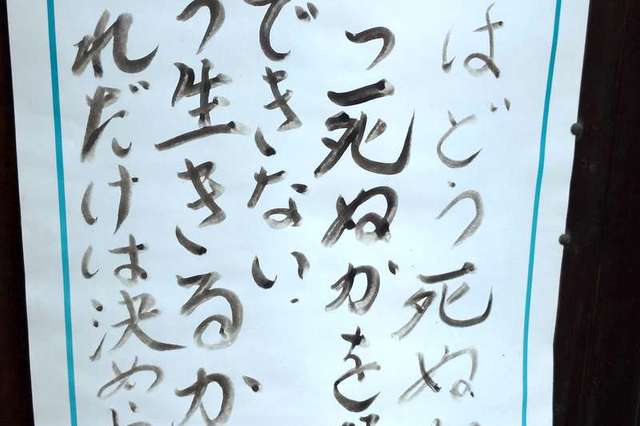 はどう死ぬ
つ死ぬかを
できない
う生きるか
れだけは決め